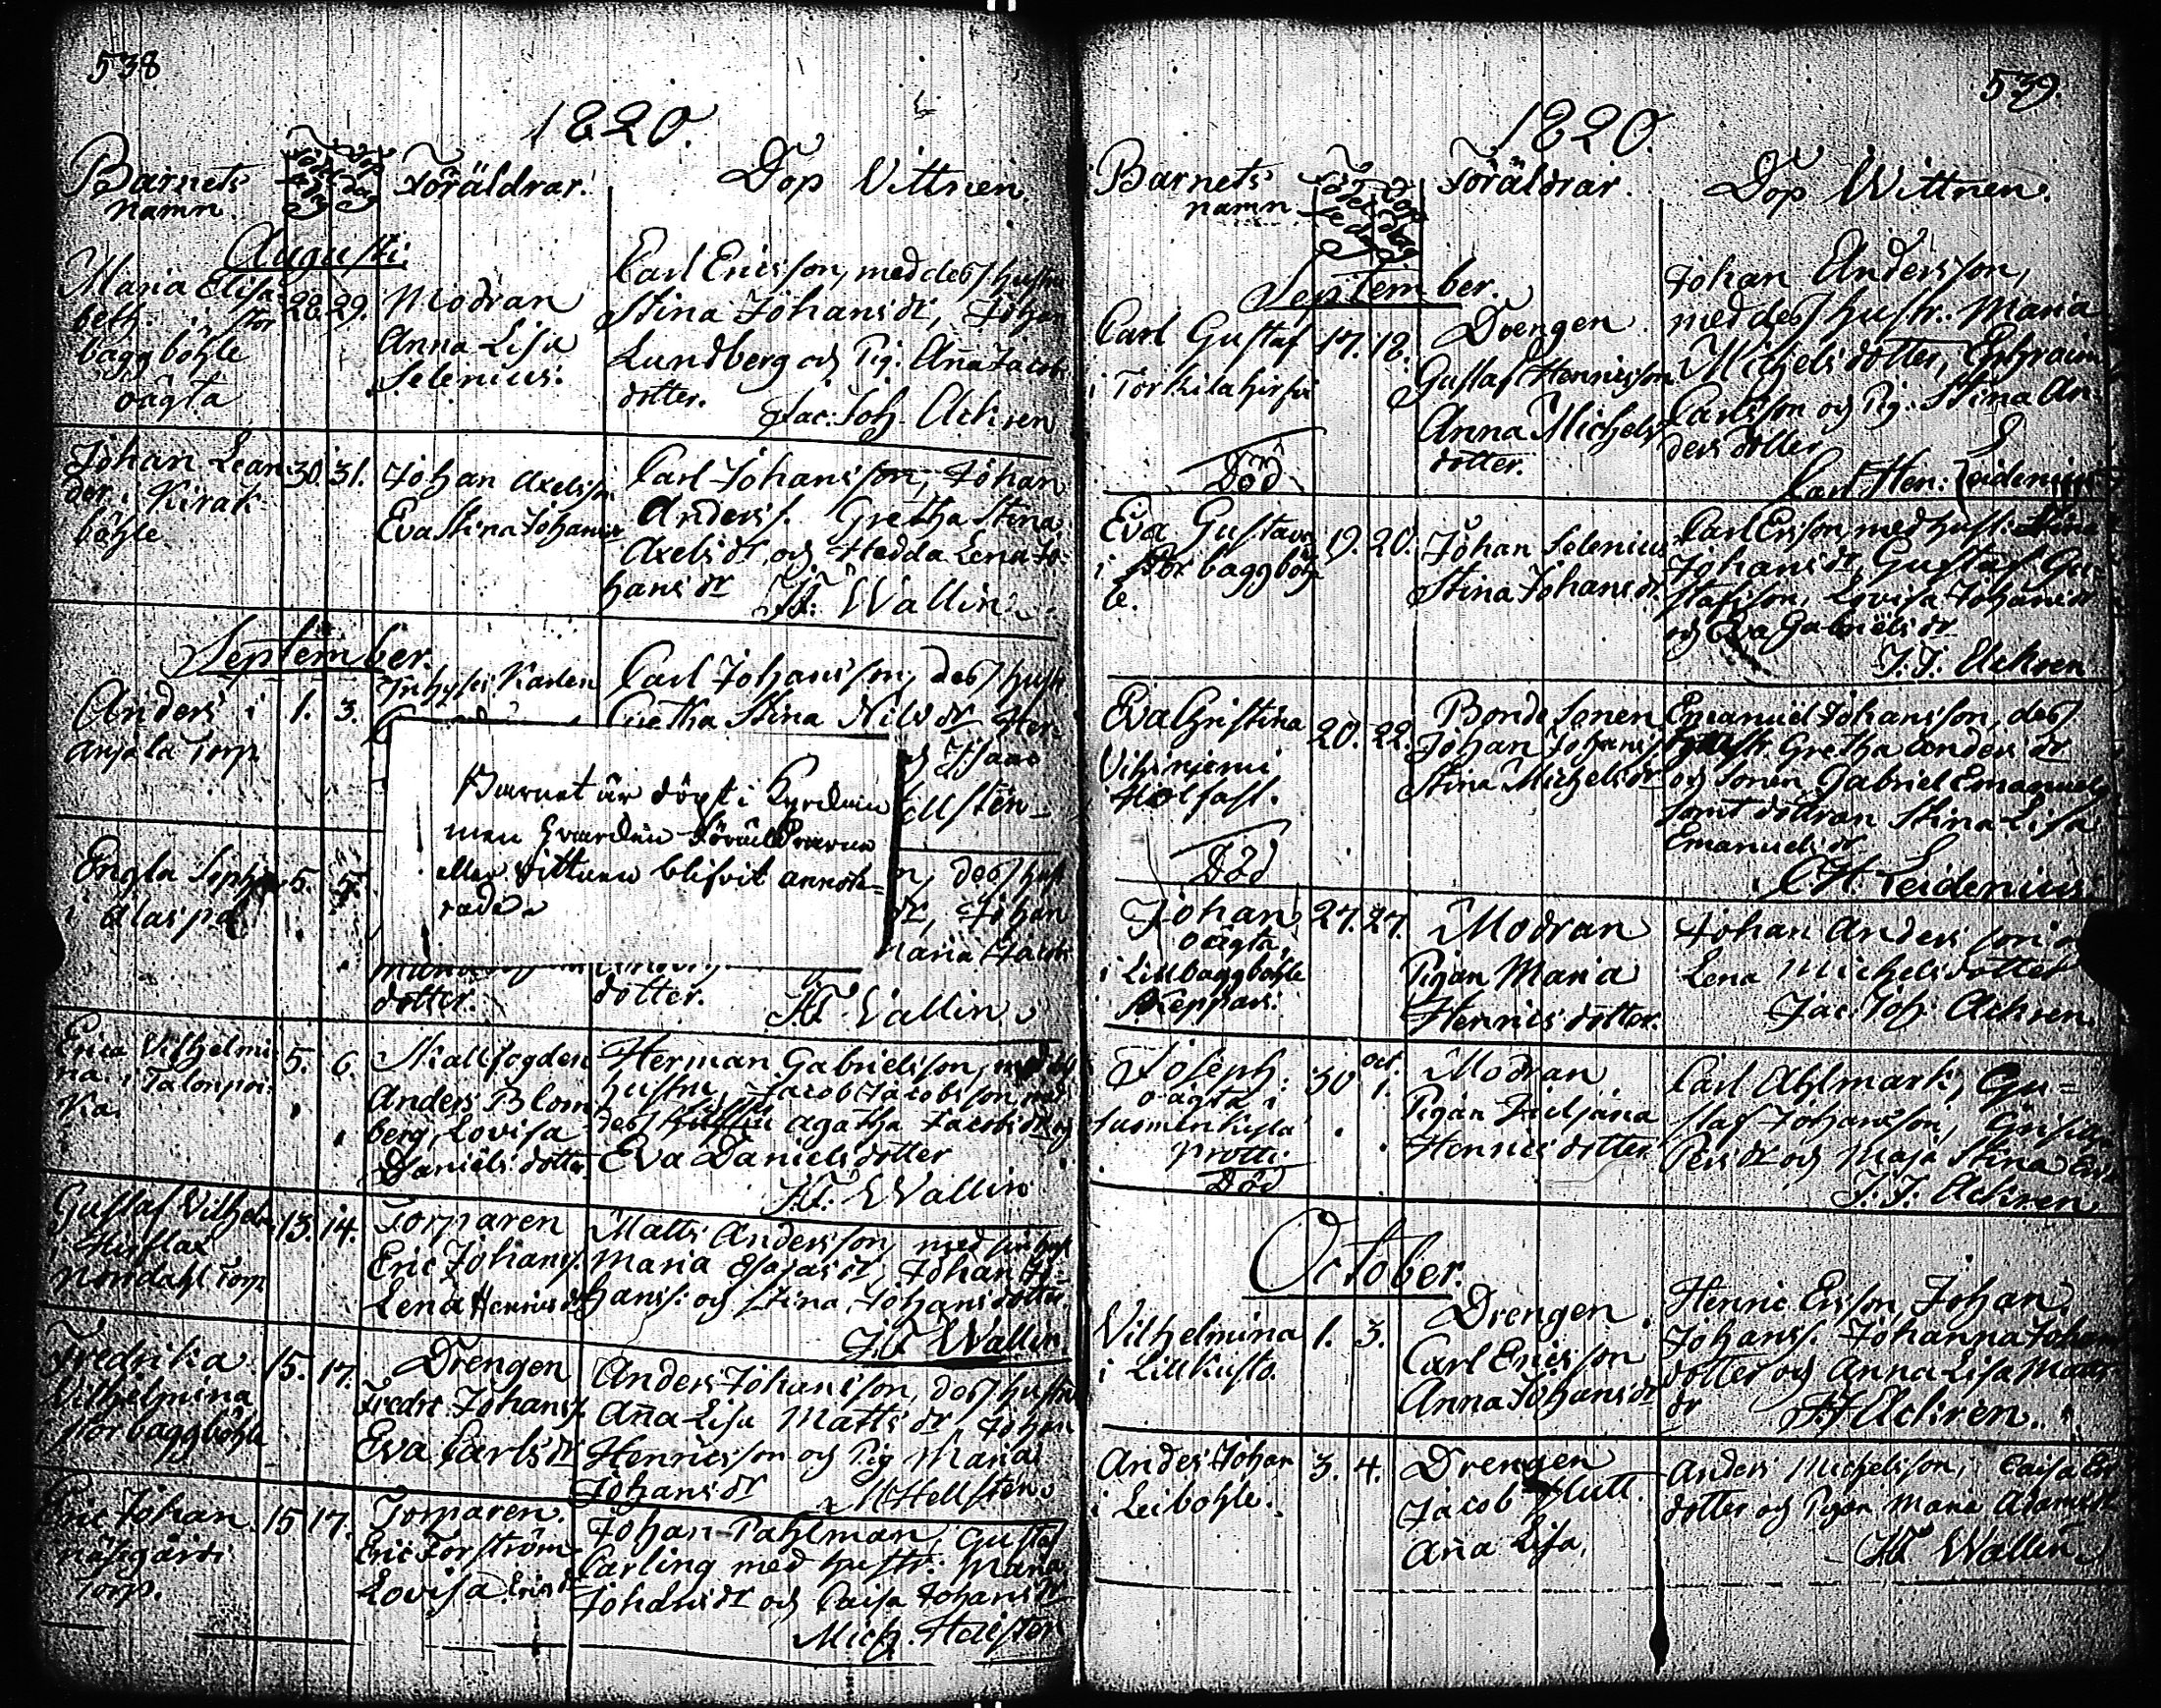 538
1820.
Barnets
namn.
Föräldrar.
Dop Vittnen
Augusti.
Maria Elisa-
beth. i Stor
baggböhle
oägta
28. 29.
Modran
Anna Lisa
Selenius.
Carl Ericsson, med dess hustru
Stina Johansdr, Johan
Lundberg och Pig. Anna Jacobs
dotter.
Jac. Joh. Ackren
Johan Lean
der i Kirak
böhle
30. 31.
Johan Axelsson
Eva Stina Johansdr
Carl Johansson, Johan
Anderss. Gretha Stina
Axelsdr, och Hedda Lena Jo
hansdr
Wallin
September.
Anders i
Anjala Torp
1. 3.
Inhyses Karlen
Carl Johansson, dess hustr
Gretha Stina Nilsdr Hen-
och Isaac
ellsten
Barnet är döpt i Kyrckan
men hvarcken Föräldrarne
eller Vittnen blifvit annote-
rade.
Engla Soph
i Alaspä
5. 5.
n, dess hust
dr, Johan
Maria Jacobs
dotter.
dotter.
Wallin
Erica Vilhelmi
na i Talonpoi
ka.
5. 6.
Skallfogden
Anders Blom
berg, Lovisa
Daniels dotter
Herman Gabrielsson, med dess
hustru, Jacob Jacobsson med
dess hustru Agatha Jacobsdr och
Eva Daniels dotter
Wallin
Gustaf Vilhelm
i
Norrdahl Torp
13. 14.
Torparen
Eric Johanss.
Lena Henricsdr
Matts Andersson, med sin hust
Maria Esaiasdr, Johan Jo-
hanss. och Stina Johans dotter.
Wallin
Fredrika
Vilhelmina
Storbaggböhle
15. 17.
Drengen
Fredr. Johanss.
Eva Carlsdr
Anders Johansson, dess hustru
Anna Lisa Mattsdr Johan
Henricsson och Pig Maria
Johansdr
Hellsten
Eric Johan
näsegårds
Torp.
15 17.
Torparen
Eric Forström
Lovisa Ericsdr
Johan Pahlman, Gustaf
Carling med hustr. Maria
Johansdr och Caisa Johansdr
Mich.
539.
1820.
Barnets
namn
Föräldrar.
Dop Wittnen.
September.
Carl Gustaf
i Torkilahirfvi
17. 18.
Drengen
Gustaf Henricsson
Anna Michels
dotter.
Död
Johan Andersson,
med dess hustr. Maria
Michels dotter, Ephraim
Carlsson och Pig. Stina An
ders dotter
Carl Hen: Leidenius
Eva Gustava
i Storbaggböh
le.
19. 20.
Johan Selenius
Stina Johansdr
Carl Ersson, med hust. Stina
Johansdr, Gustaf Gu-
stafsson, Lovisa Johansdr
och Eva Gabrielsdr
J. J. Ackren
Eva Christina
Vihiniemi
i
20. 22.
Bonde Sonen
Johan Johanss.
Stina Michelsdr
Död
Emanuel Johansson, dess
hustr. Gretha Andersdr
och Sonen Gabriel Emanuels.
samt dottran Stina Lisa
Emanuelsdr
C H. Leidenius
Johan
oägta,
i Lillbaggböhle
27. 27.
Modran
Pigan Maria
Henrics dotter.
Johan Andersson
Lena Michelsdotter
Jac. Joh. Ackren.
Joseph
oägta i
30 oct. 1.
Modran
Pigan Juliana
Henrics dotter
Död
Carl Ahlmark, Gu=
staf Johansson,
Persdr och Maja Stina
J. J. Ackren
October.
Vilhelmina
i Lillkusto.
1. 3.
Drengen
Carl Ericsson
Anna Johansdr
Henric Ersson, Johan
Johanss. Johanna Johans
dotter och Anna Lisa Matts
dr
J J Ackren.
Anders Johan
i Leiböhle.
3. 4.
Drengen
Jacob Flutt
Anna Lisa.
Anders Michelsson, Caisa Ers
dotter och Pigan Maria Adamsdr
Wallin